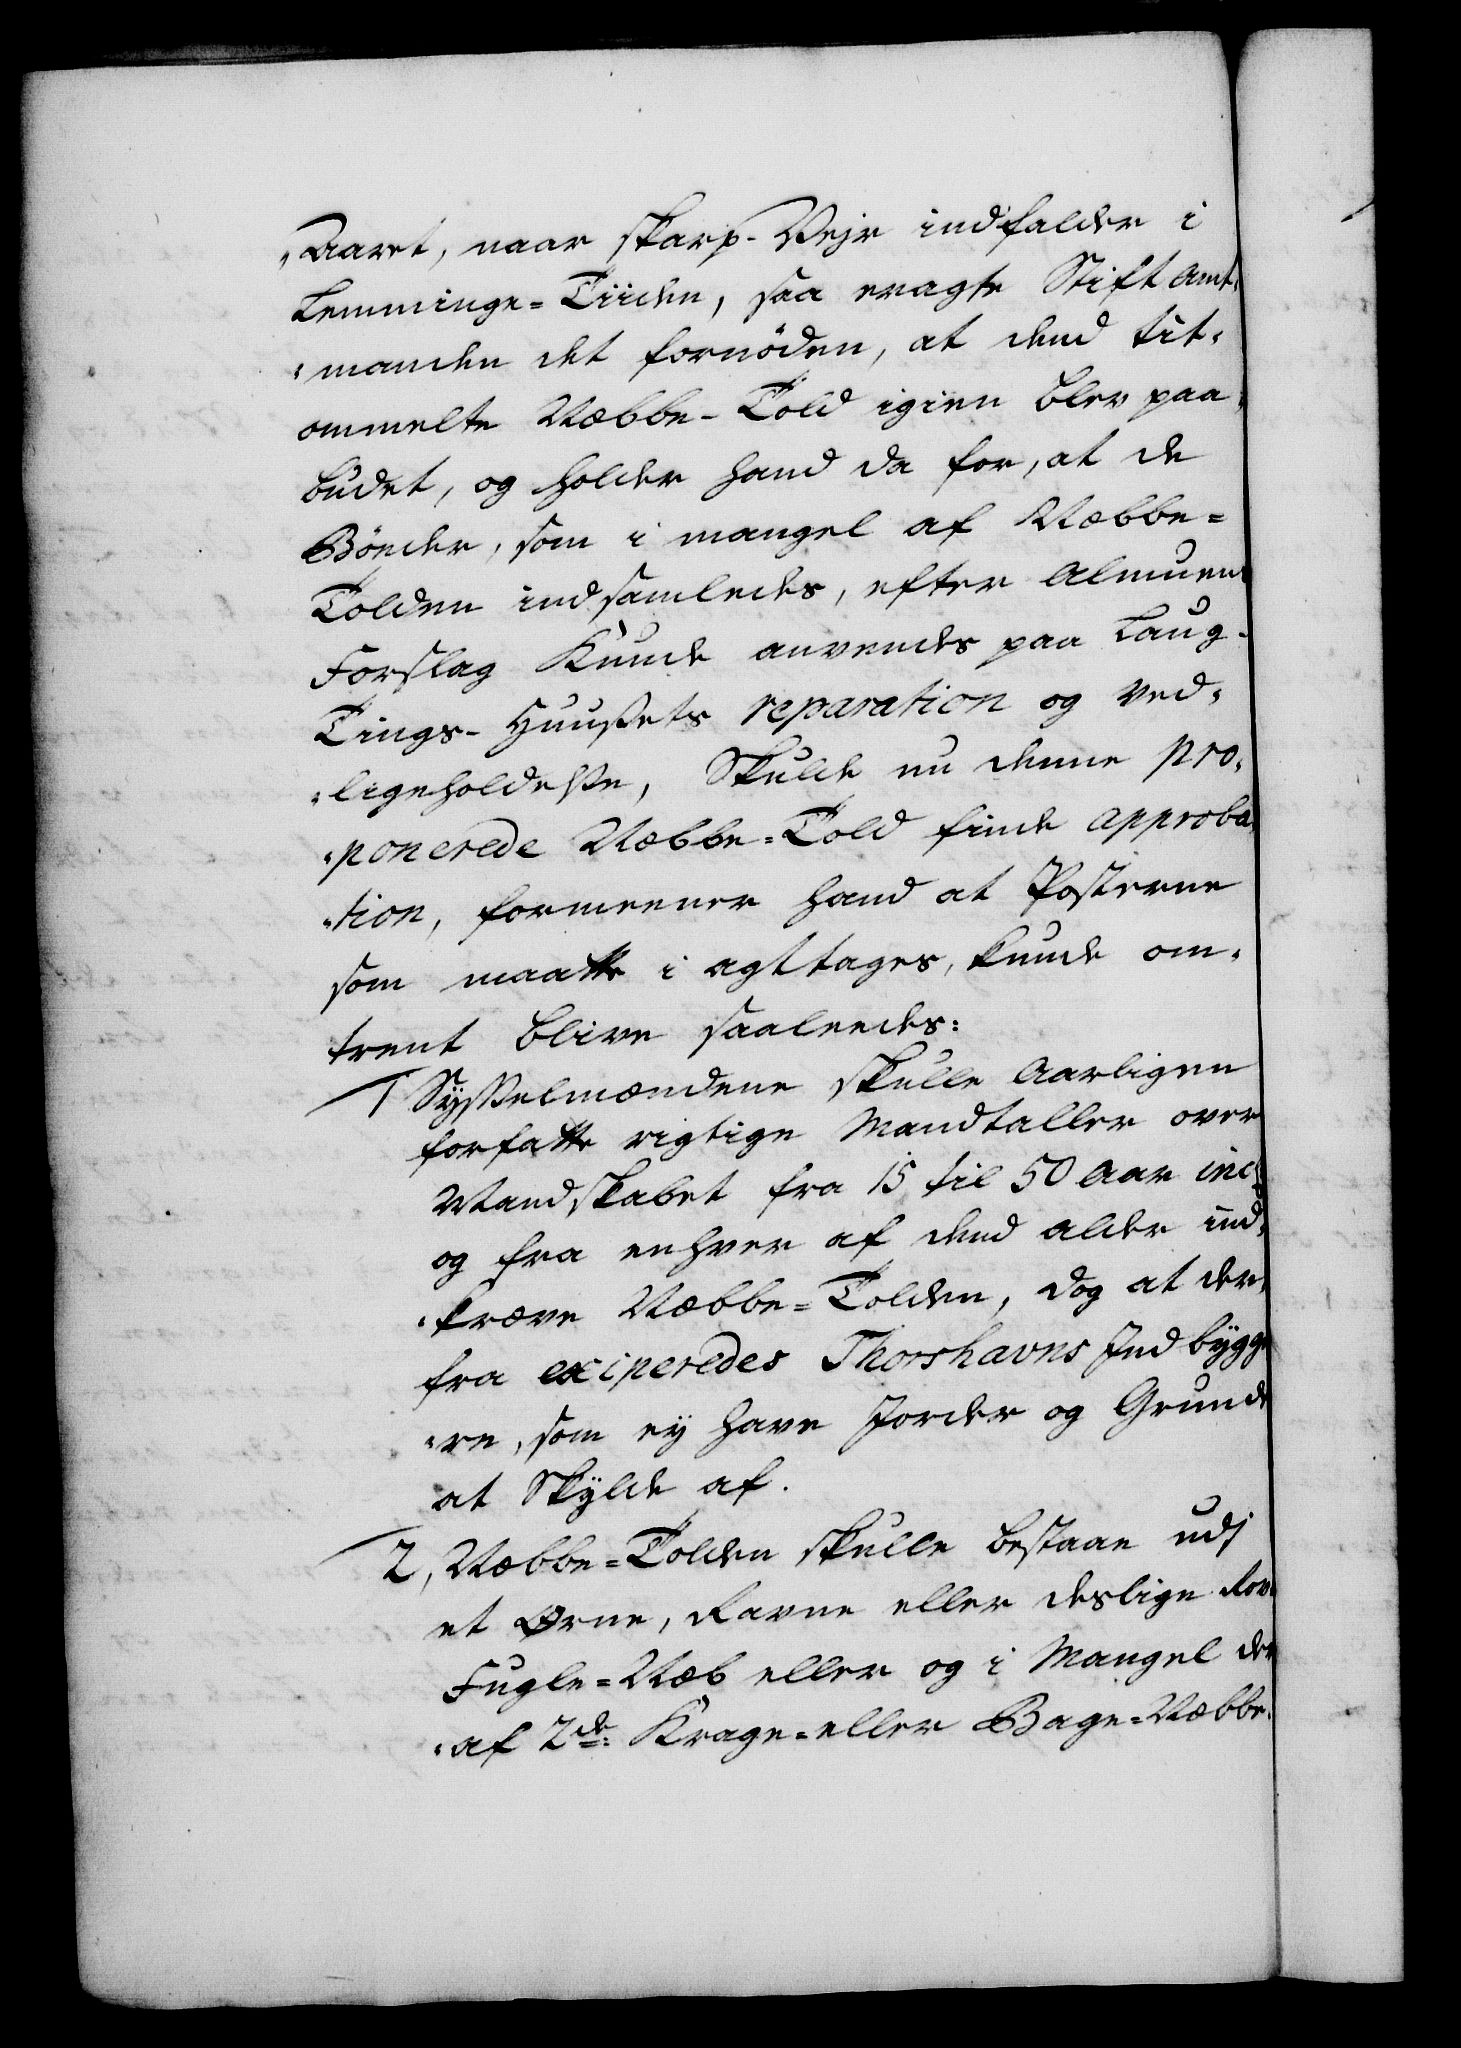 „Aaret, naar skarp-Vejr indfalder i
Lemminge=Tiiden, saa eragte Stift Amt„
„manden det fornöden, at dend tit„
ommelte Næbbe-Told igien blev paa„
budet, og holder hand da for, at de
Bönder, som i mangel af Næbbe=
Tolden indsamledes, efter Almuens
Forslag Kunde anvendes paa Laug-
Tings-Huußets reparation og Ved„
„ligeholdelße, Skulde nu denne pro„
„ponerede Næbbe=Told finde approba„
„tion, formeener hand at Posterne
som maatte i agttages, kunde om„
trent blive saaleedes:
1 Sysselmændene skulle Aarligen
forfatte rigtige Mandtaller over
Mandskabet fra 15 til 50 Aar incl
og fra enhver af dend alder ind„
„kræve Næbbe=Tolden, dog at der„
fra exciperedes Thorshavns Indbygge
„re, som ey have Jorder og Grunde
at Skylde af.
2, Næbbe=Tolden skulle bestaae udj
et Ørne, Ravne eller deslige Rov„
Fugle=Næb eller og i Mangel der
„af 2de: Krage=eller Bage=Næbbe.